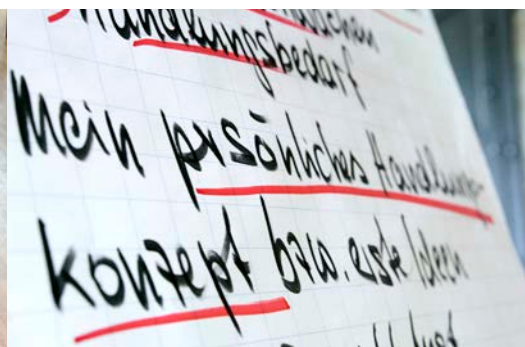 Handlungsbedarf
Mein prsönliches Handlungs-
konzept bzw. erste Ideen